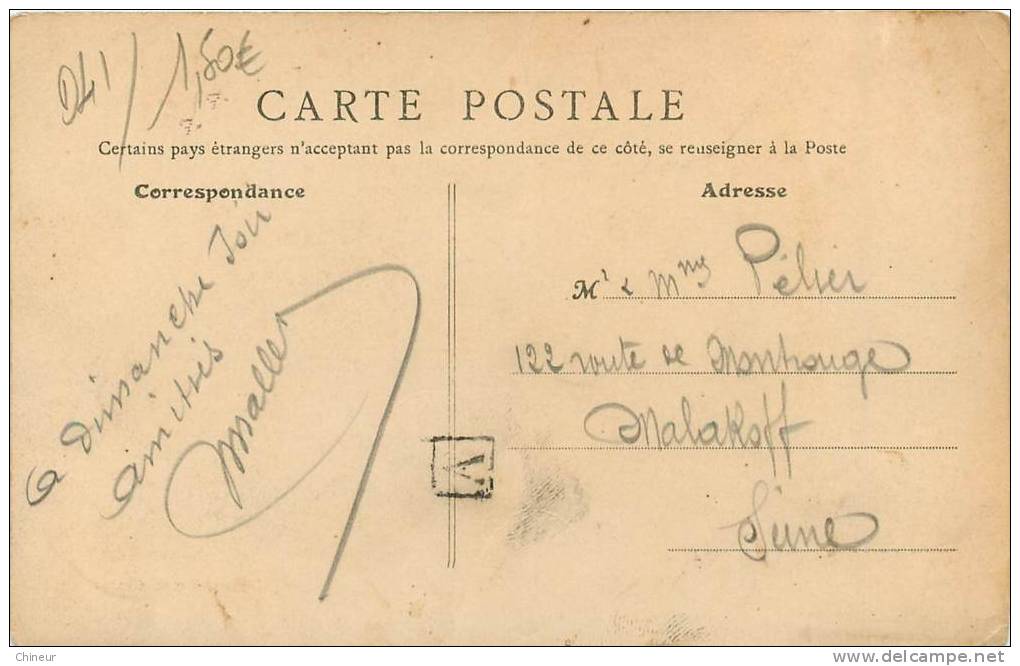 D41 / 1,80€
CARTE POSTALE
Certains pays étrangers n'acceptent pas la correspondance de ce côté, se renseigner à la Poste
Correspondance
a dimanche soir
amitiés
Adresse
Mr & Mme
122 route de Montrouge
Malakoff
Seine
V
Chineur
www.delcampe.net